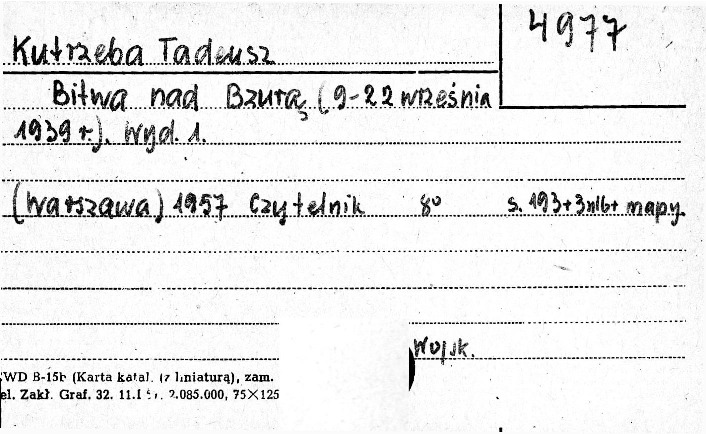 4977
Kutrzeba Tadeusz
Bitwa nad Bzurą (9-22 września
1939 r.). Wyd. 1.
(Warszawa) 1957 Czytelnik 8° s. 193+3nlb+ mapy.
Wojsk.
WD B-15b (Karta katal. (z liniaturą), zam.
el. Zakł. Graf. 32. 11.I 2.085.000, 75×125